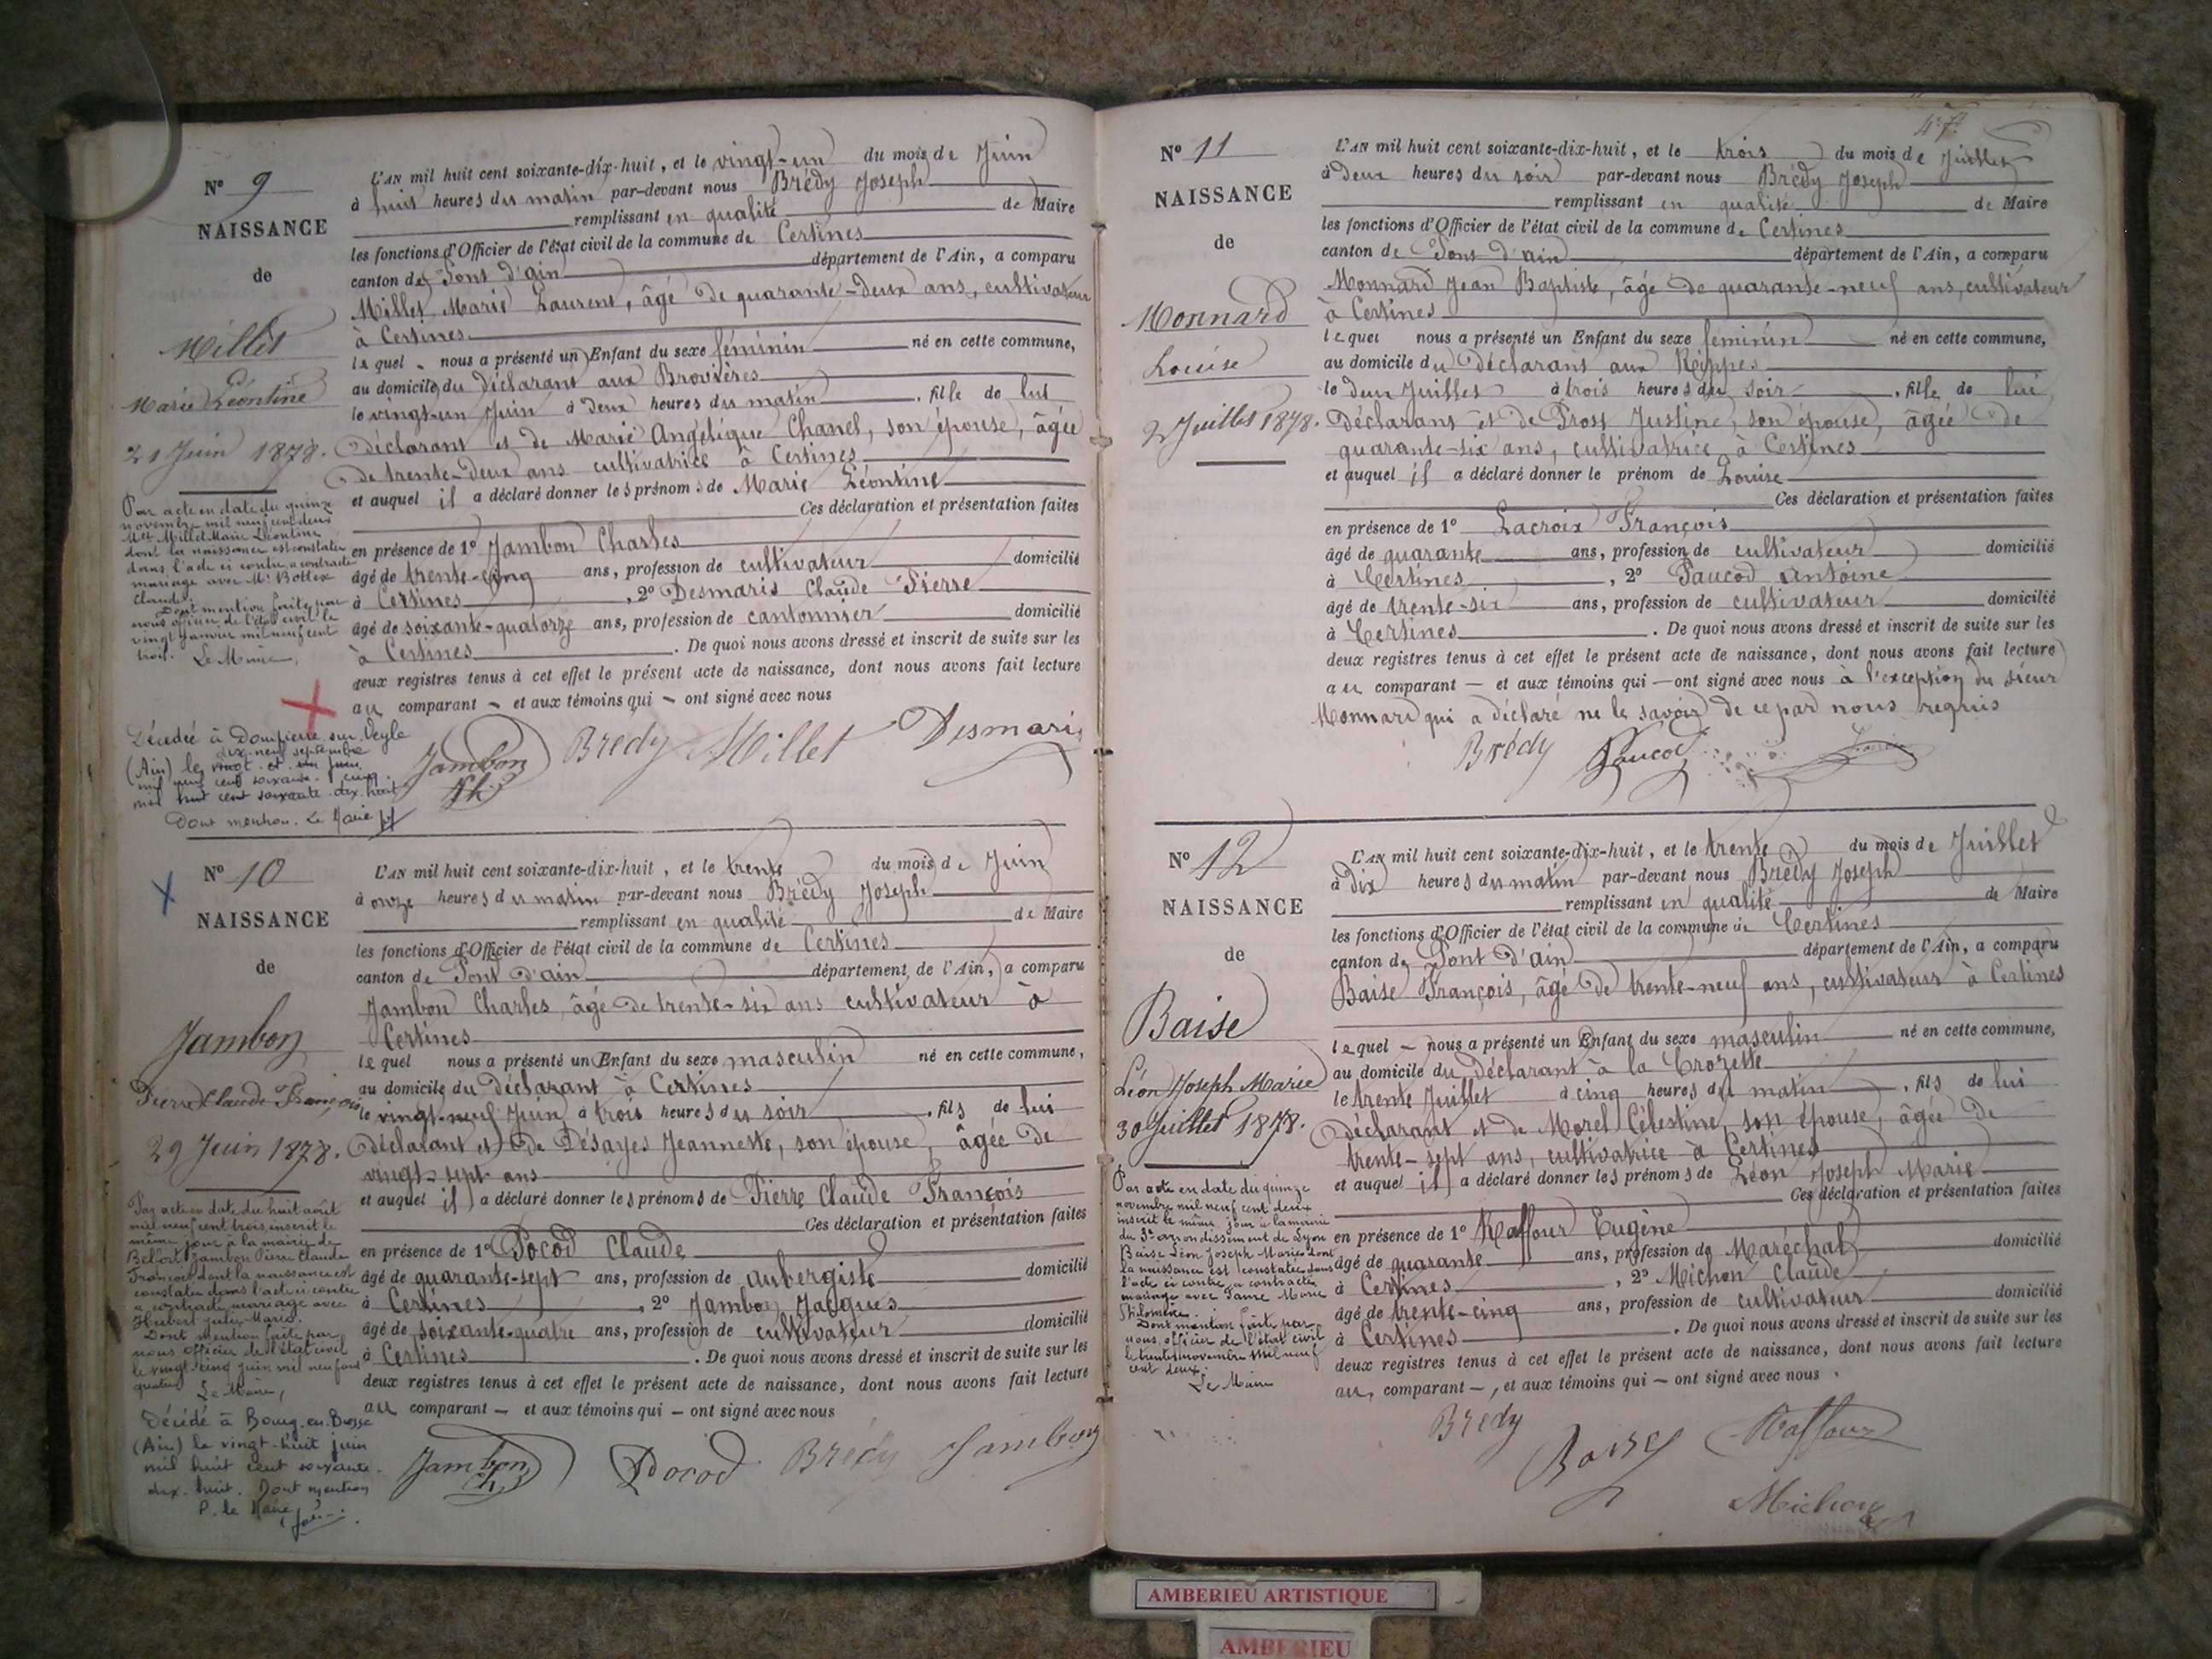 N° 9
NAISSANCE
de
Millet
Marie Léontine
21 Juin 1878.
Par acte en date du quinze
novembre mil neuf cent deux
Melle Millet Marie Léontine
dont la naissance est constatée
dans l'acte ci contre a contracté
mariage avec Mr Bollex
Claude.
Dont mention faite par
nous officier de l'état civil le
vingt Janvier mil neuf cent
trois. Le Maire,
Décédée à Dompierre sur Veyle
dix-neuf septembre
(Ain) le vingt et un juin
mil neuf cent soixante cinq.
mil huit cent soixante dix huit
Dont mention. Le Maire
L'AN mil huit cent soixante-dix-huit, et le vingt-un du mois de Juin
à huit heures du matin par-devant nous Brédy Joseph
remplissant en qualité de Maire
les fonctions d'Officier de l'état civil de la commune de Certines
canton de Pont d'ain département de l'Ain, a comparu
Millet Marie Laurent, âgé de quarante-deux ans, cultivateur
à Certines
lequel nous a présenté un Enfant du sexe féminin né en cette commune,
au domicile du déclarant aux Brovières
le vingt-un Juin à deux heures du matin, fille de lui
déclarant et de Marie Angélique Chanel, son épouse, âgée
de trente-deux ans cultivatrice à Certines
et auquel il a déclaré donner les prénoms de Marie Léontine
Ces déclaration et présentation faites
en présence de 1° Jambon Charles
âgé de trente-cinq ans, profession de cultivateur domicilié
à Certines, 2° Desmaris Claude Pierre
âgé de soixante-quatorze ans, profession de cantonnier domicilié
à Certines. De quoi nous avons dressé et inscrit de suite sur les
deux registres tenus à cet effet le présent acte de naissance, dont nous avons fait lecture
au comparant — et aux témoins qui — ont signé avec nous
Jambon Ch Brédy Millet Desmaris
N° 10
NAISSANCE
de
Jambon
Pierre Claude François
29 Juin 1878.
Par acte en date du huit août
mil neuf cent trois inscrit le
même jour à la mairie de
Belfort Jambon Pierre Claude
François dont la naissance est
constatée dans l'acte ci contre
a contracté mariage avec
Hubert Julie Marie.
Dont mention faite par
nous officier de l'état civil
le vingt cinq juin mil neuf cent
quatre Le Maire,
Décédé à Bourg-en-Bresse
(Ain) le vingt-huit juin
mil huit cent soixante-
dix-huit. Dont mention
P. le Maire
L'AN mil huit cent soixante-dix-huit, et le trente du mois de Juin
à onze heures du matin par-devant nous Brédy Joseph
remplissant en qualité de Maire
les fonctions d'Officier de l'état civil de la commune de Certines
canton de Pont d'ain département de l'Ain, a comparu
Jambon Charles, âgé de trente-six ans cultivateur à
Certines
lequel nous a présenté un Enfant du sexe masculin né en cette commune,
au domicile du déclarant à Certines
le vingt-neuf Juin à trois heures du soir, fils de lui
déclarant et de Désayes Jeannette, son épouse, âgée de
vingt-sept ans
et auquel il a déclaré donner les prénoms de Pierre Claude François
Ces déclaration et présentation faites
en présence de 1° Pocod Claude
âgé de quarante-sept ans, profession de aubergiste domicilié
à Certines, 2° Jambon Jacques
âgé de soixante-quatre ans, profession de cultivateur domicilié
à Certines. De quoi nous avons dressé et inscrit de suite sur les
deux registres tenus à cet effet le présent acte de naissance, dont nous avons fait lecture
au comparant — et aux témoins qui — ont signé avec nous
Jambon Ch Pocod Brédy Jambon
47
N° 11
NAISSANCE
de
Monnard
Louise
2 Juillet 1878.
L'AN mil huit cent soixante-dix-huit, et le trois du mois de Juillet
à deux heures du soir par-devant nous Brédy Joseph
remplissant en qualité de Maire
les fonctions d'Officier de l'état civil de la commune de Certines
canton de Pont d'ain département de l'Ain, a comparu
Monnard Jean Baptiste, âgé de quarante-neuf ans, cultivateur
à Certines
lequel nous a présenté un Enfant du sexe féminin né en cette commune,
au domicile du déclarant aux Rippes
le deux Juillet à trois heures du soir, fille de lui
déclarant et de Prost Justine, son épouse, âgée de
quarante-six ans, cultivatrice à Certines
et auquel il a déclaré donner le prénom de Louise
Ces déclaration et présentation faites
en présence de 1° Lacroix François
âgé de quarante ans, profession de cultivateur domicilié
à Certines, 2° Paucod Antoine
âgé de trente-six ans, profession de cultivateur domicilié
à Certines. De quoi nous avons dressé et inscrit de suite sur les
deux registres tenus à cet effet le présent acte de naissance, dont nous avons fait lecture
au comparant — et aux témoins qui — ont signé avec nous à l'exception du sieur
Monnard qui a déclaré ne le savoir de ce par nous requis
Brédy Paucod
N° 12
NAISSANCE
de
Baise
Léon Joseph Marie
30 Juillet 1878.
Par acte en date du quinze
novembre mil neuf cent deux
inscrit le même jour à la mairie
du 3e arrondissement de Lyon
Baise Léon Joseph Marie dont
la naissance est constatée dans
l'acte ci contre a contracté
mariage avec Marie
Philomène.
Dont mention faite par
nous officier de l'état civil
le trente novembre mil neuf
cent deux.
Le Maire
L'AN mil huit cent soixante-dix-huit, et le trente du mois de Juillet
à dix heures du matin par-devant nous Brédy Joseph
remplissant en qualité de Maire
les fonctions d'Officier de l'état civil de la commune de Certines
canton de Pont d'ain département de l'Ain, a comparu
Baise François, âgé de trente-neuf ans, cultivateur à Certines
lequel — nous a présenté un Enfant du sexe masculin né en cette commune,
au domicile du déclarant à la Crozette
le trente Juillet à cinq heures du matin, fils de lui
déclarant et de Morel Célestine, son épouse, âgée de
trente-sept ans, cultivatrice à Certines
et auquel il a déclaré donner les prénoms de Léon Joseph Marie
Ces déclaration et présentation faites
en présence de 1° Raffour Eugène
âgé de quarante ans, profession de Maréchal domicilié
à Certines, 2° Michon Claude
âgé de trente-cinq ans, profession de cultivateur domicilié
à Certines. De quoi nous avons dressé et inscrit de suite sur les
deux registres tenus à cet effet le présent acte de naissance, dont nous avons fait lecture
au comparant —, et aux témoins qui — ont signé avec nous.
Brédy Baise Raffour
Michon
AMBERIEU ARTISTIQUE
AMBERIEU